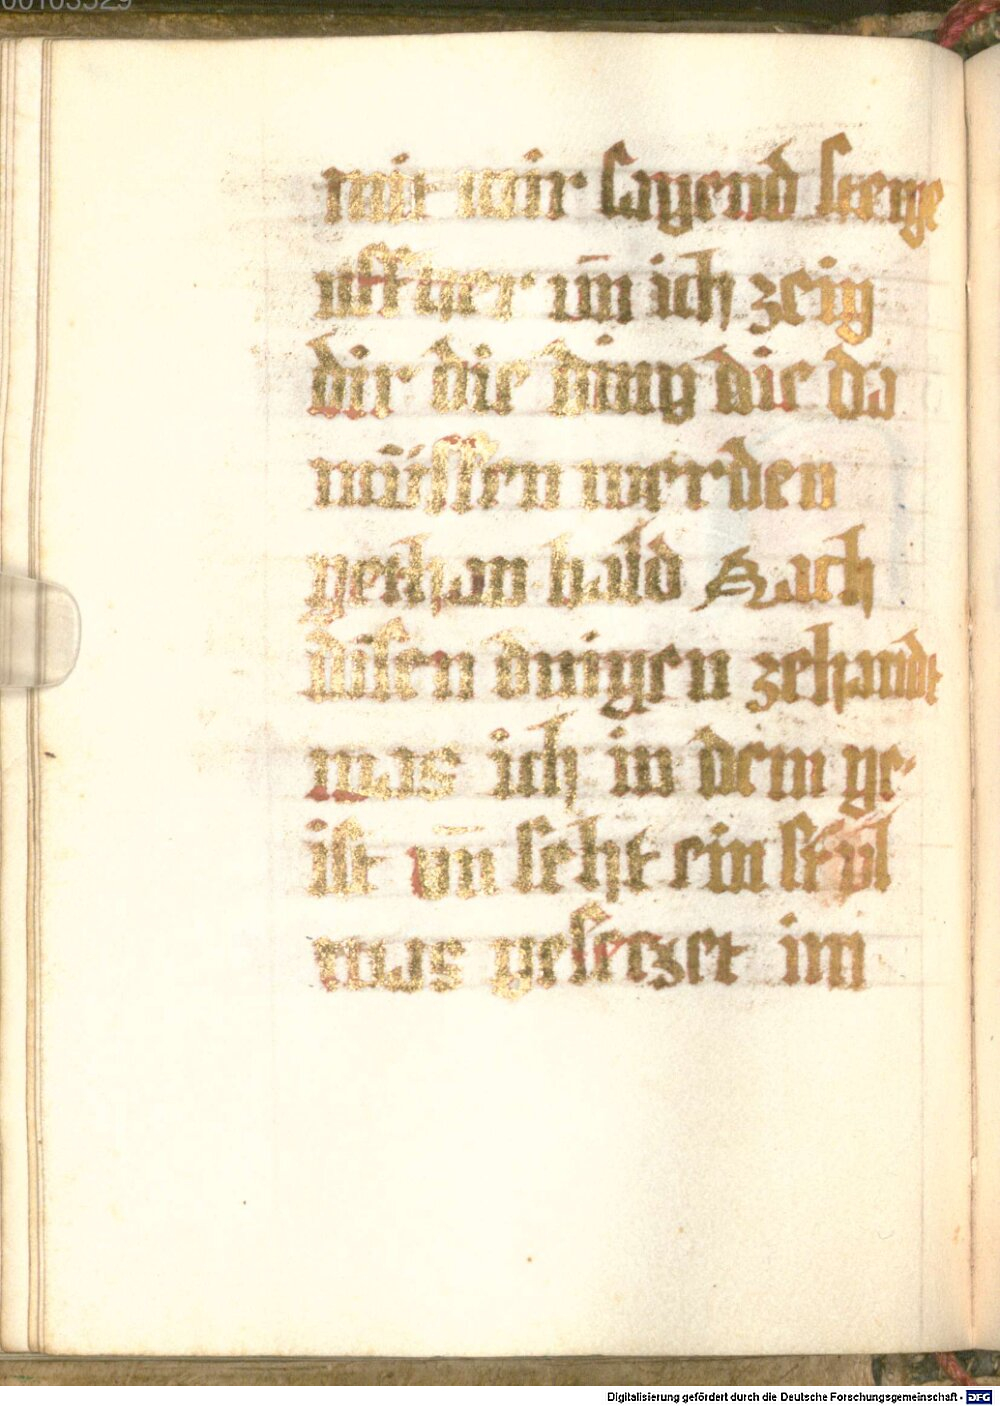 00103529
mit mir sagend steyge
uff her un̄ ich zeig
dir die ding die da
müssen werden
gethan bald Nach
disen dingen zehandt
was ich in dem ge-
ist un̄ seht ein stul
was gesetzet im
Digitalisierung gefördert durch die Deutsche Forschungsgemeinschaft - DFG